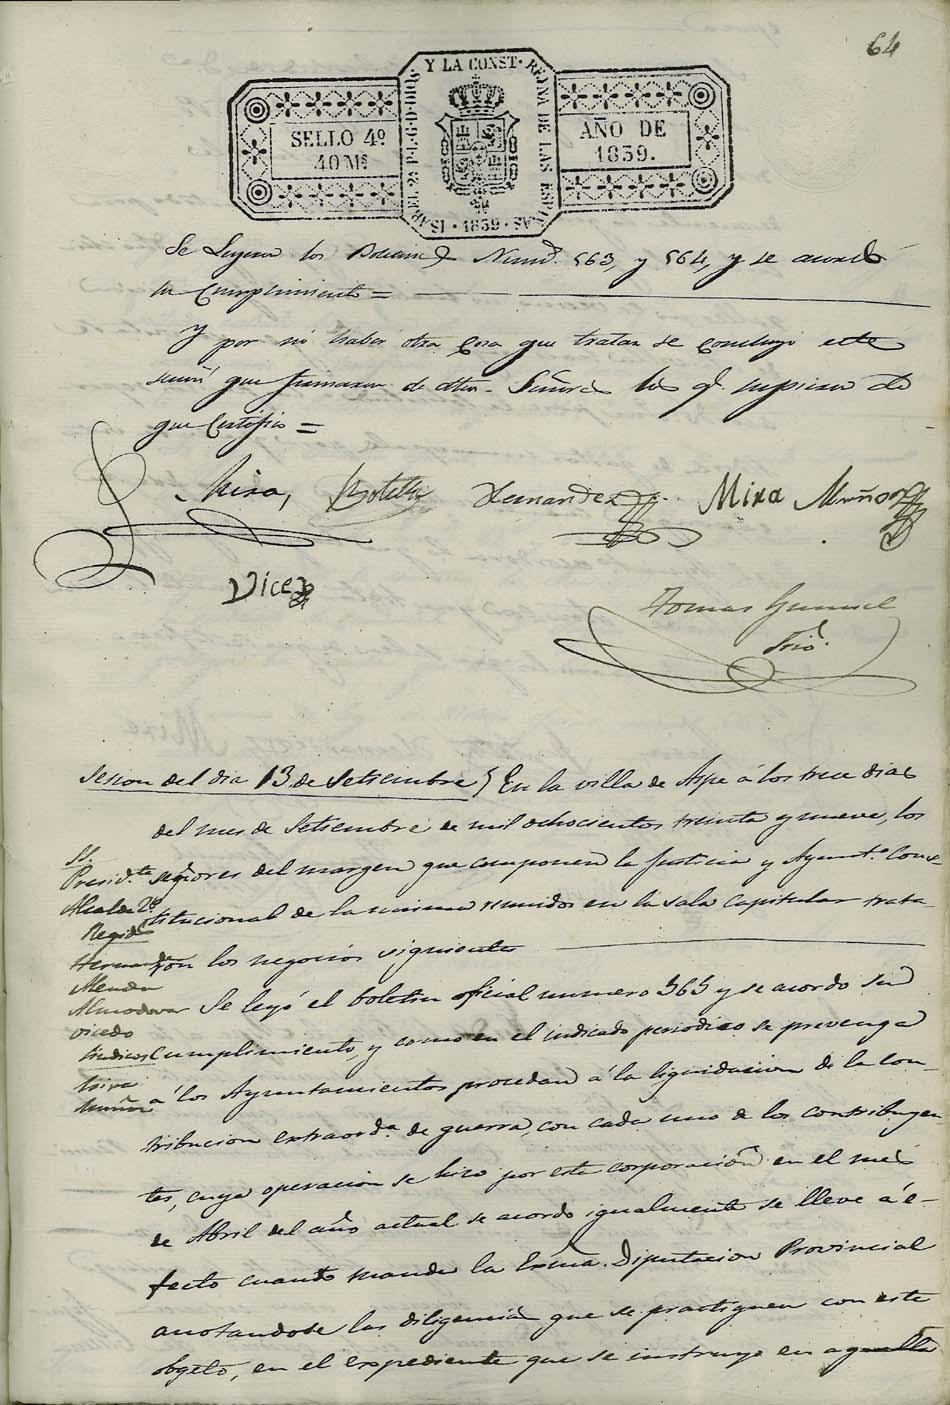 64
SELLO 4º
40 Ms
ISABEL 2ª P. L. G. D. DIOS Y LA CONST. REYNA DE LAS ESPAÑAS
1839
AÑO DE
1839.
Se leyeron los Boletines Nums. 563, y 564, y se acordó
su Cumplimiento =
Y por no haber otra cosa que tratar se concluyó este
que firmaron de dhos. Señores los q. supieron de
que Certifico =
Mira, Botella Hernandez Mira Muñoz
Vicedo
Tomas
Srio.
Sesion del dia 13 de Setiembre } En la villa de Aspe á los trece dias
del mes de Setiembre de mil ochocientos treinta y nueve, los
SS.
Presid.te
Alcalde 2º
Regid.s
Hernandez
Almodovar
Vicedo
Sindicos
Mira
Muñoz
señores del margen que componen la Justicia y Ayunt.º Cons-
titucional de la misma reunidos en la sala Capitular trata-
ron los negocios siguientes
Se leyó el boletin oficial numero 565 y se acordo su
cumplimiento, y como en el indicado periodico se prevenga
á los Ayuntamientos procedan á la liquidacion de la con-
tribucion extraord.a de guerra, con cada uno de los contribuyen-
tes, cuya operacion se hizo por esta corporacion en el mes
de Abril del año actual se acordo igualmente se lleve á e-
fecto cuanto mande la Exma. Diputacion Provincial
anotandose las diligencias que se practiquen con este
obgeto, en el expediente que se instruye en aquella